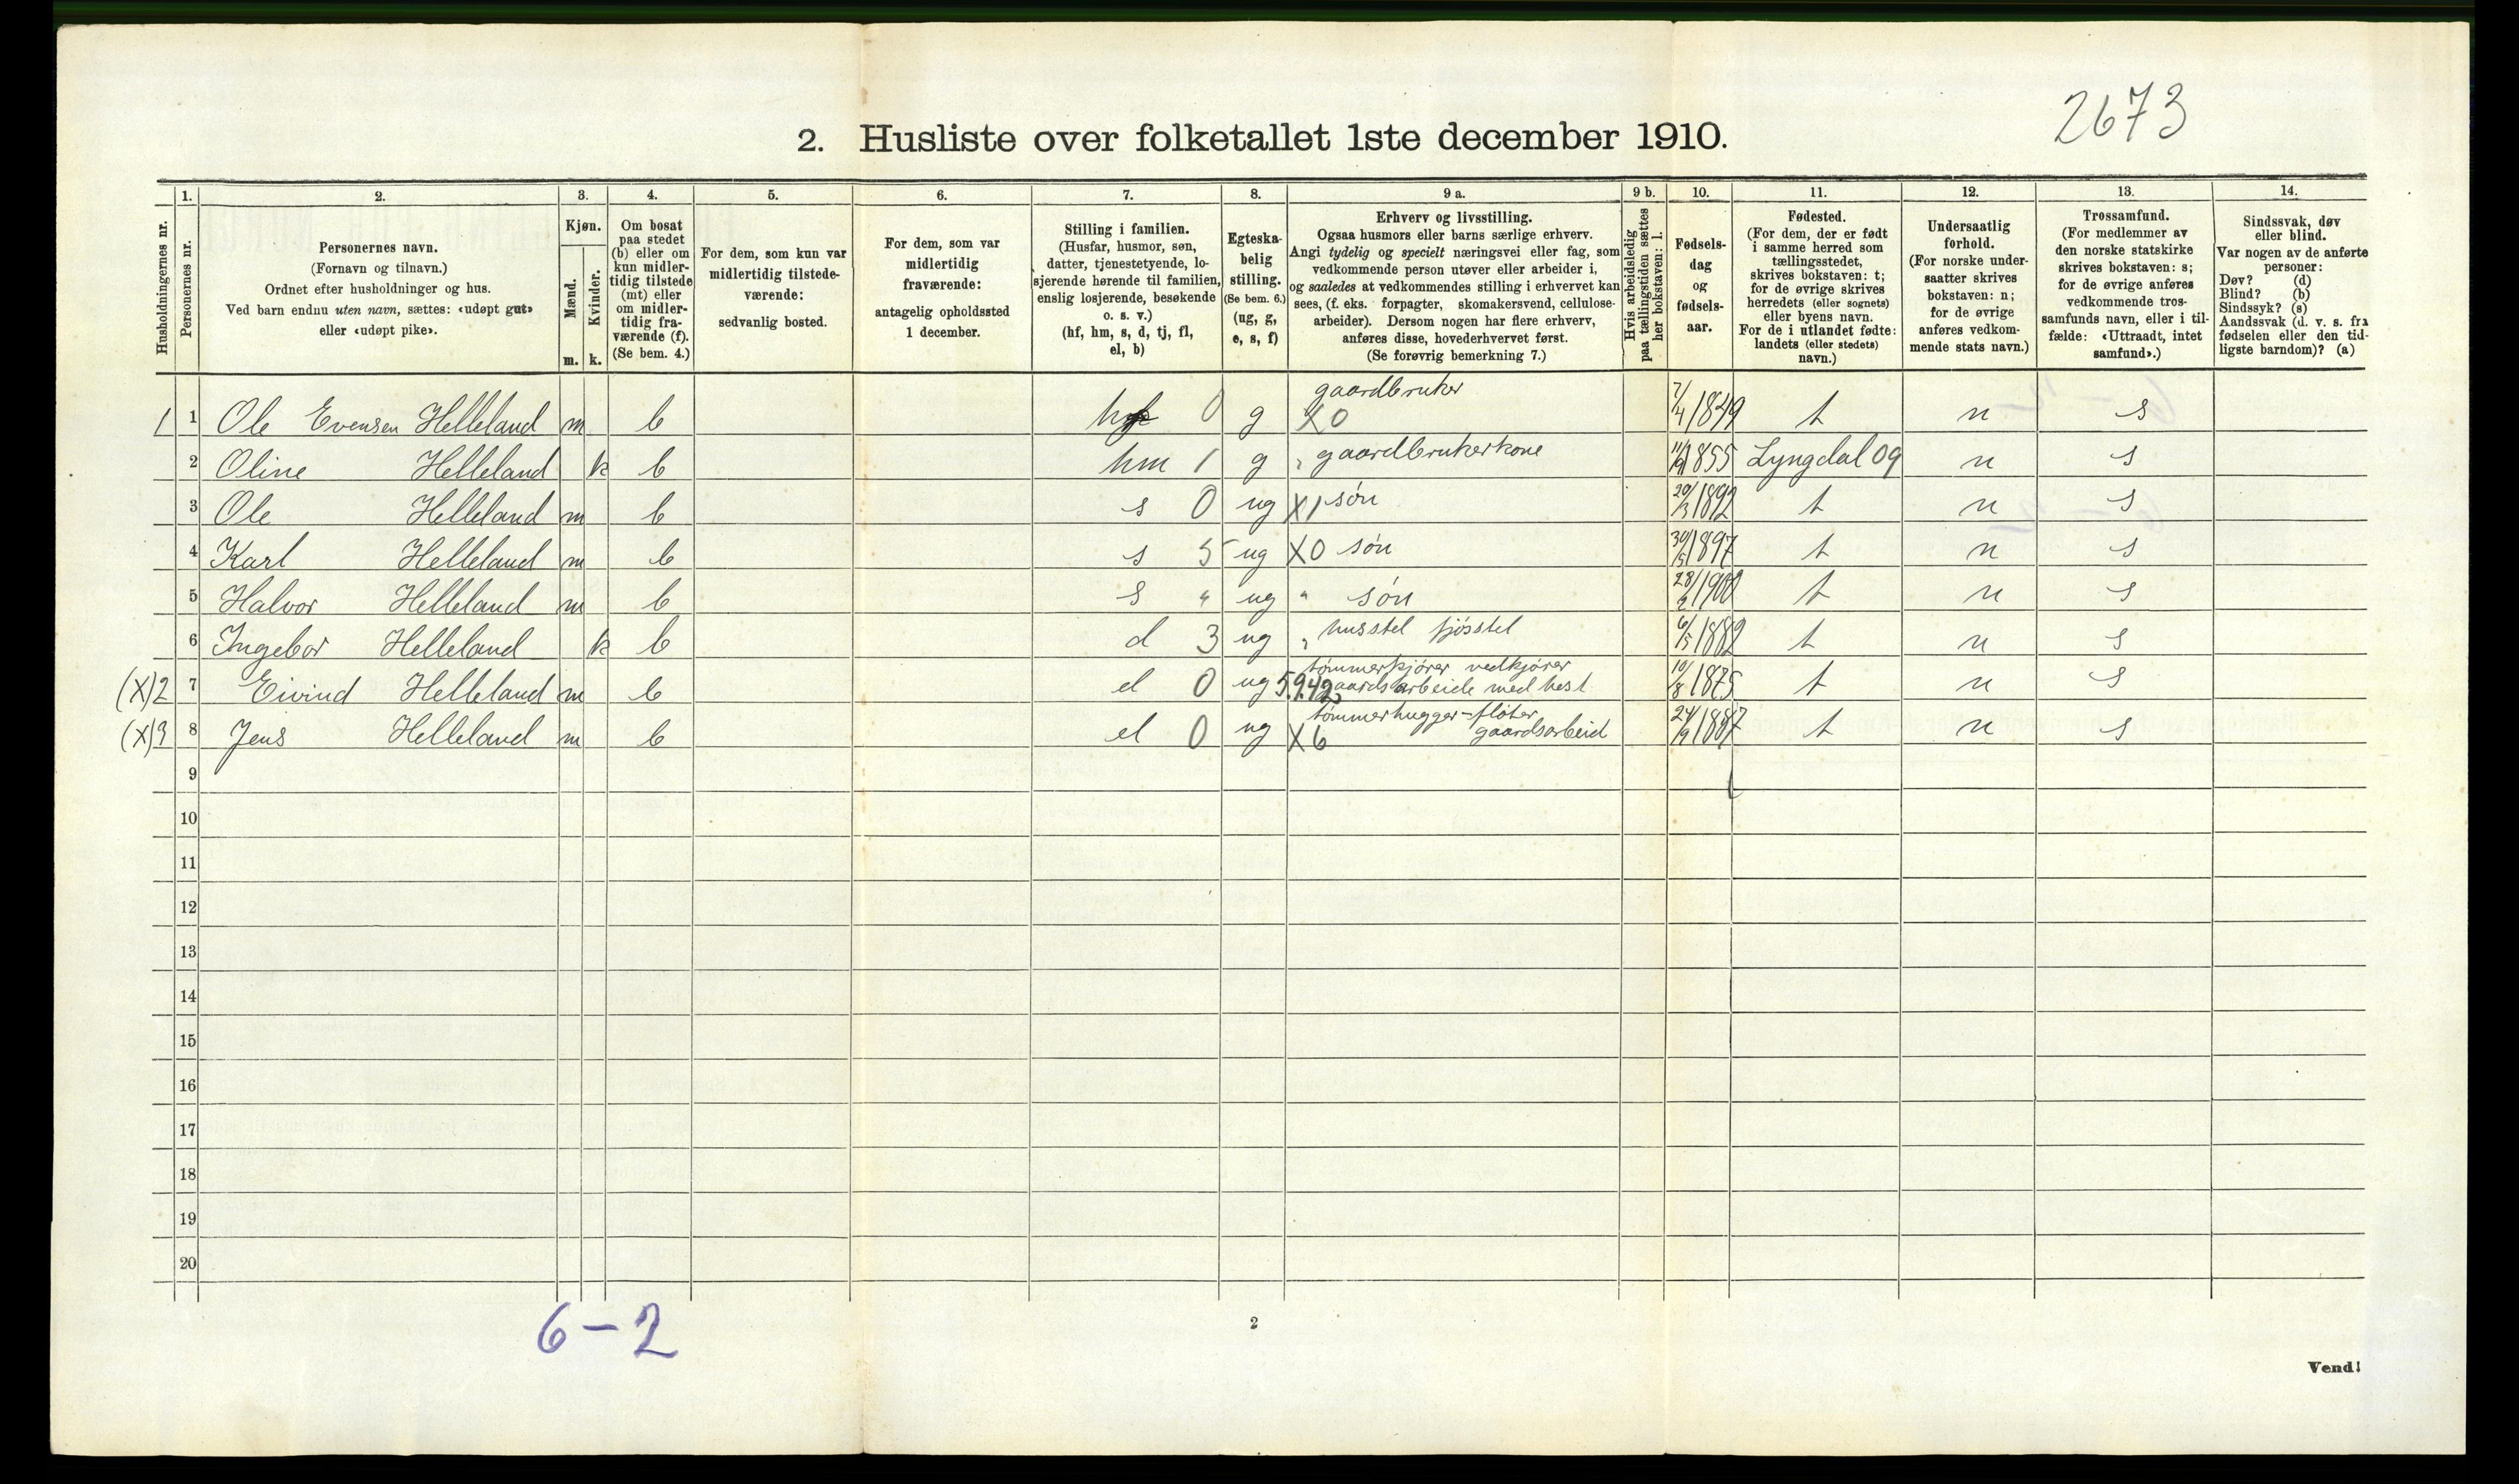 2673
2. Husliste over folketallet 1ste december 1910.
Husholdningernes nr.
1.
Personernes nr.
2.
Personernes navn.
(Fornavn og tilnavn.)
Ordnet efter husholdninger og hus.
Ved barn endnu uten navn, sættes: «udøpt gut»
eller «udøpt pike».
3.
Kjøn.
Mænd.
Kvinder.
m. k.
4.
Om bosat
paa stedet
(b) eller om
kun midler-
tidig tilstede
(mt) eller
om midler-
tidig fra-
værende (f).
(Se bem. 4.)
5.
For dem, som kun var
midlertidig tilstede-
værende:
sedvanlig bosted.
6.
For dem, som var
midlertidig
fraværende:
antagelig opholdssted
1 december.
7.
Stilling i familien.
(Husfar, husmor, søn,
datter, tjenestetyende, lo-
sjerende hørende til familien,
enslig losjerende, besøkende
o. s. v.)
(hf, hm, s, d, tj, fl,
el, b)
8.
Egteska-
belig
stilling.
(Se bem. 6.)
(ug, g,
e, s, f)
9 a.
Erhverv og livsstilling.
Ogsaa husmors eller barns særlige erhverv.
Angi tydelig og specielt næringsvei eller fag, som
vedkommende person utøver eller arbeider i,
og saaledes at vedkommendes stilling i erhvervet kan
sees, (f. eks. forpagter, skomakersvend, cellulose-
arbeider). Dersom nogen har flere erhverv,
anføres disse, hovederhvervet først.
(Se forøvrig bemerkning 7.)
9 b.
Hvis arbeidsledig
paa tællingstiden sættes
her bokstaven: l.
10.
Fødsels-
dag
og
fødsels-
aar.
11.
Fødested.
(For dem, der er født
i samme herred som
tællingsstedet,
skrives bokstaven: t;
for de øvrige skrives
herredets (eller sognets)
eller byens navn.
For de i utlandet fødte:
landets (eller stedets)
navn.)
12.
Undersaatlig
forhold.
(For norske under-
saatter skrives
bokstaven: n;
for de øvrige
anføres vedkom-
mende stats navn.)
13.
Trossamfund.
(For medlemmer av
den norske statskirke
skrives bokstaven: s;
for de øvrige anføres
vedkommende tros-
samfunds navn, eller i til-
fælde: «Uttraadt, intet
samfund».)
14.
Sindssvak, døv
eller blind.
Var nogen av de anførte
personer:
Døv? (d)
Blind? (b)
Sindssyk? (s)
Aandssvak (d. v. s. fra
fødselen eller den tid-
ligste barndom)? (a)
1 1 Ole Evensen Helleland m b hf 0 g gaardbruker X0 7/4 1849 t n s
2 Oline Helleland k b hm 1 g " gaardbrukerkone 1855 Lyngdal 09 n s
3 Ole Helleland m b s 0 ug X1 søn 20/3 1892 t n s
4 Karl Helleland m b s 5 ug X0 søn 30/5 1897 t n s
5 Halvor Helleland m b s " ug " søn 28/2 1900 t n s
6 Ingebor Helleland k b d 3 ug " husstel fjøsstel 6/5 1882 t n s
(X)2 7 Eivind Helleland m b el 0 ug tømmerkjører vedkjører 5.9.42 gaardsarbeide med hest 10/8 1875 t n s
(X)3 8 Jens Helleland m b el 0 ug tømmerhugger-fløter X6 gaardsarbeid 24/9 1887 t n s
9
10
11
12
13
14
15
16
17
18
19
20
6-2
2
Vend!